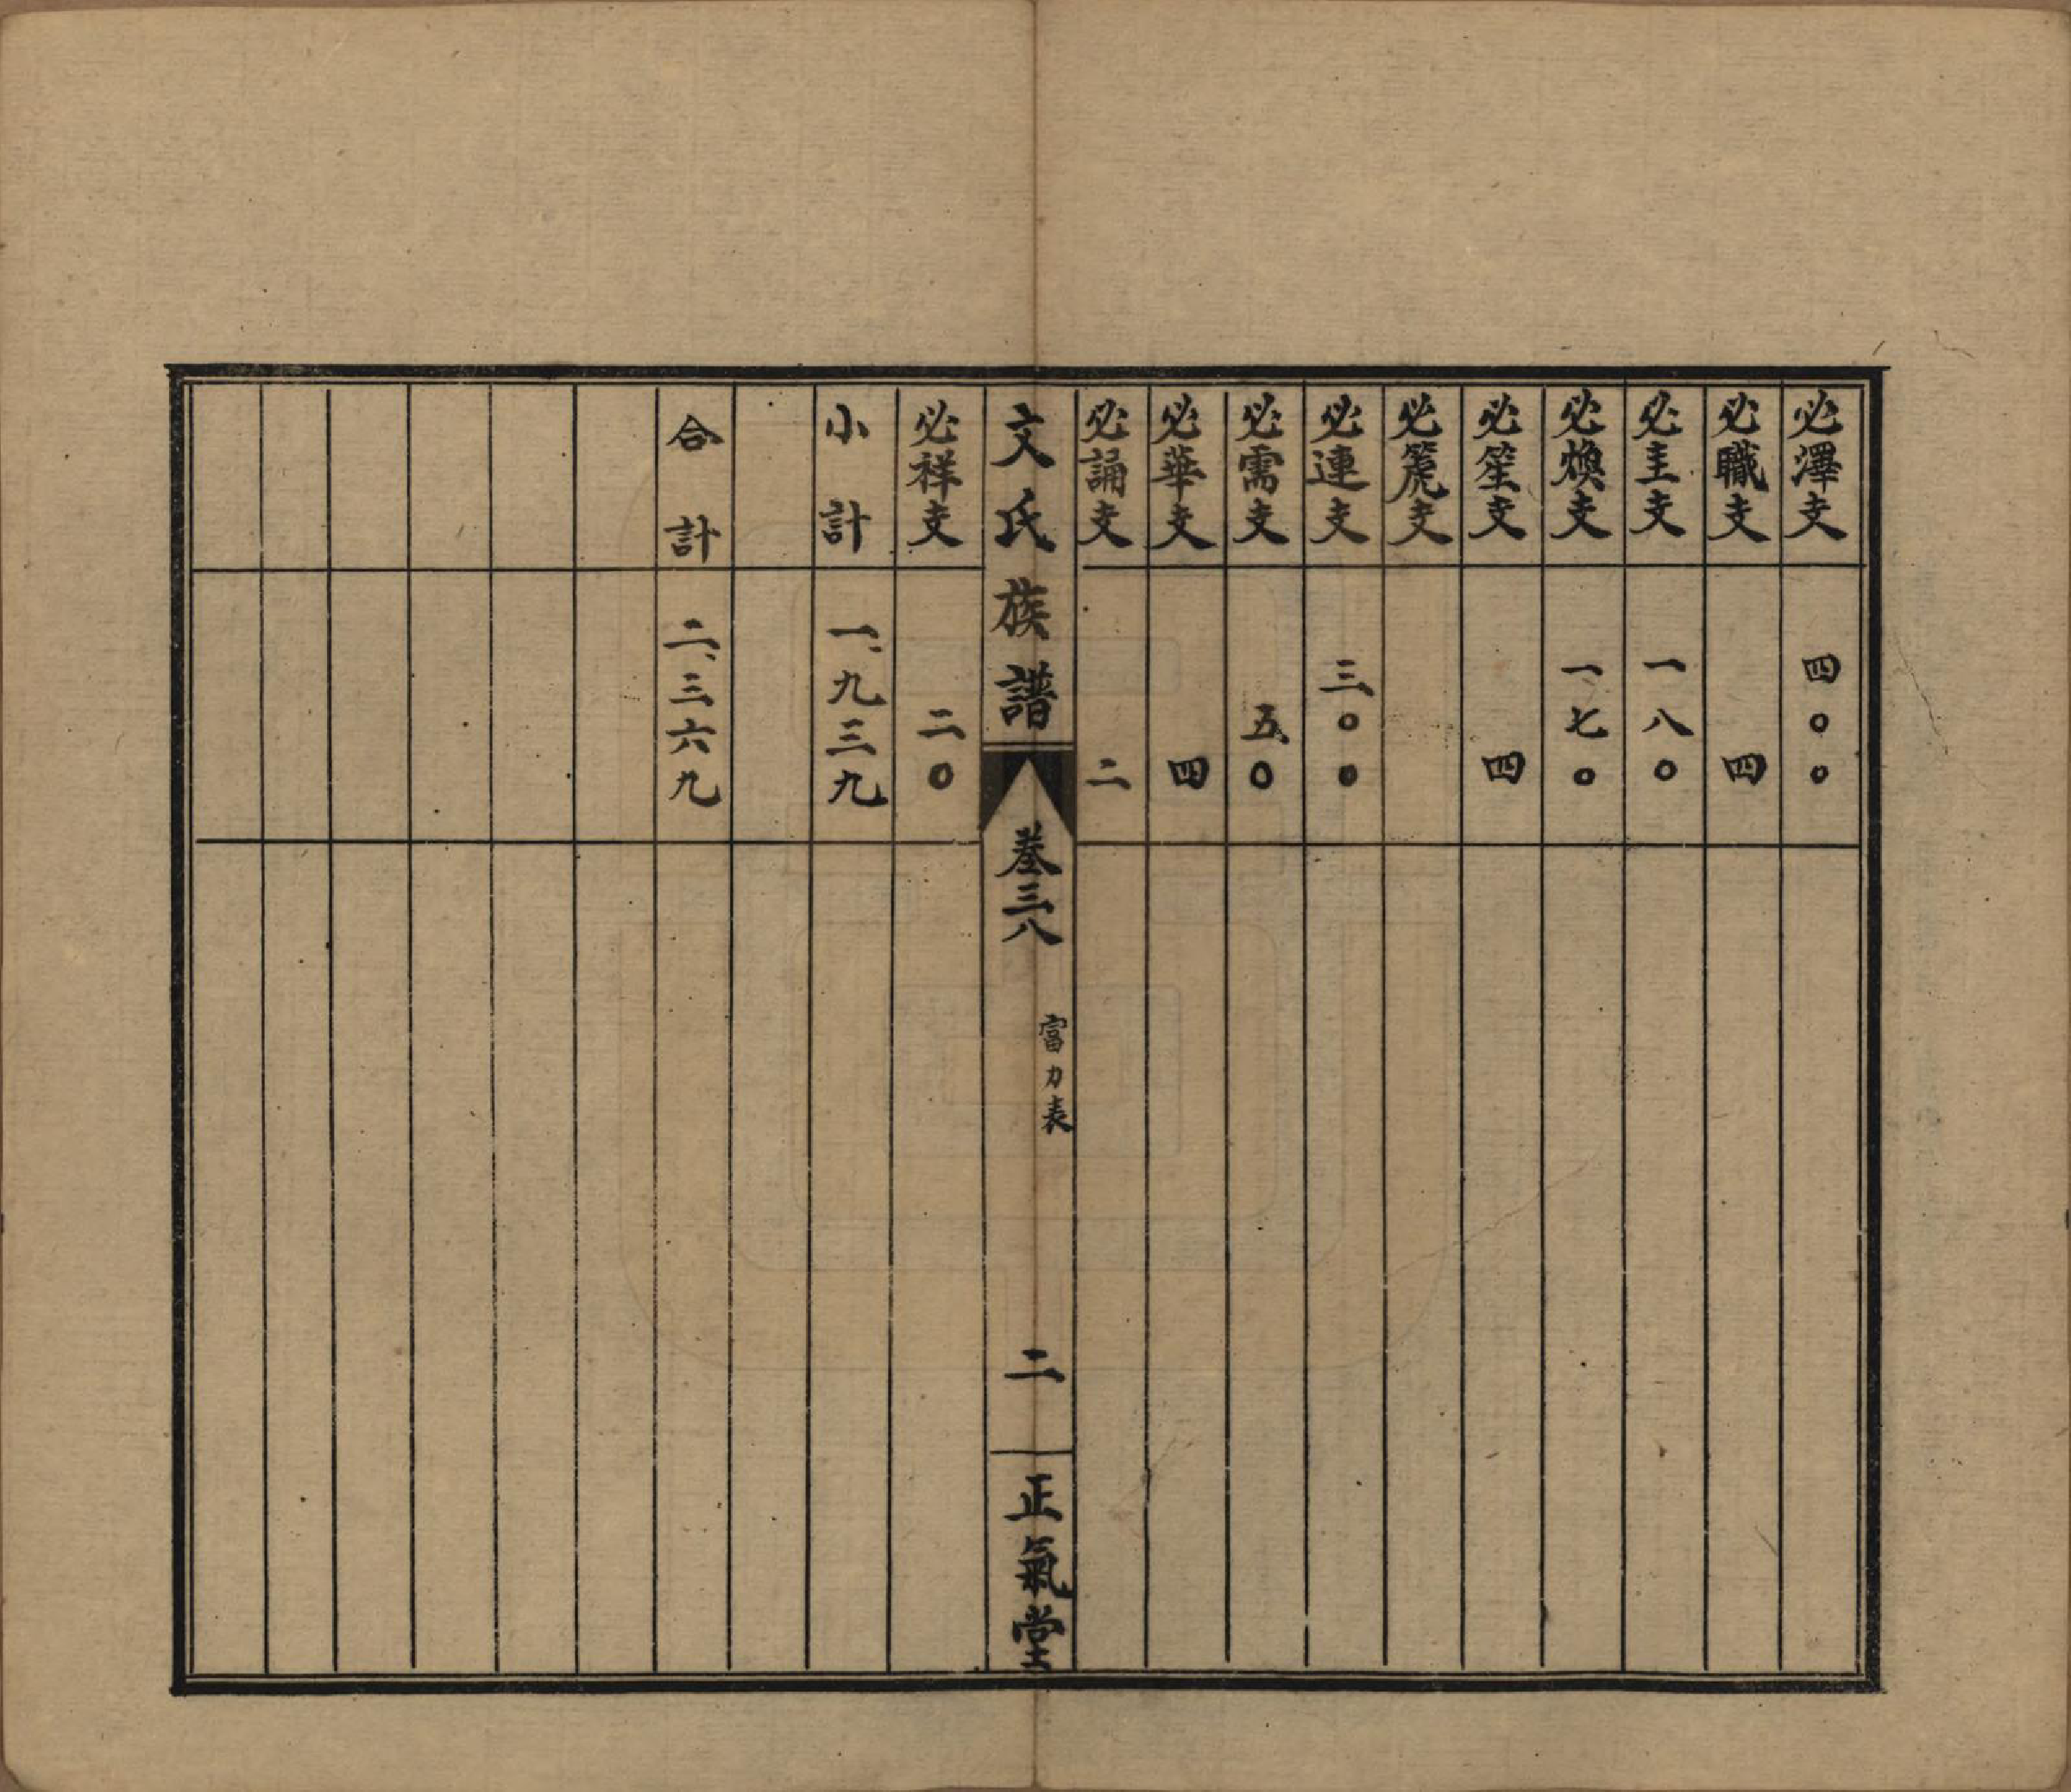 必澤支 四〇〇
必職支 四
必圭支 一八〇
必煥支 一七〇
必笙支 四
必箎支
必連支 三〇〇
必需支 五〇
必華支 四
必誦支 二
文氏族譜 卷三八 富力表 二 正氣堂
必祥支 二〇
小計 一、九三九
合計 二、三六九